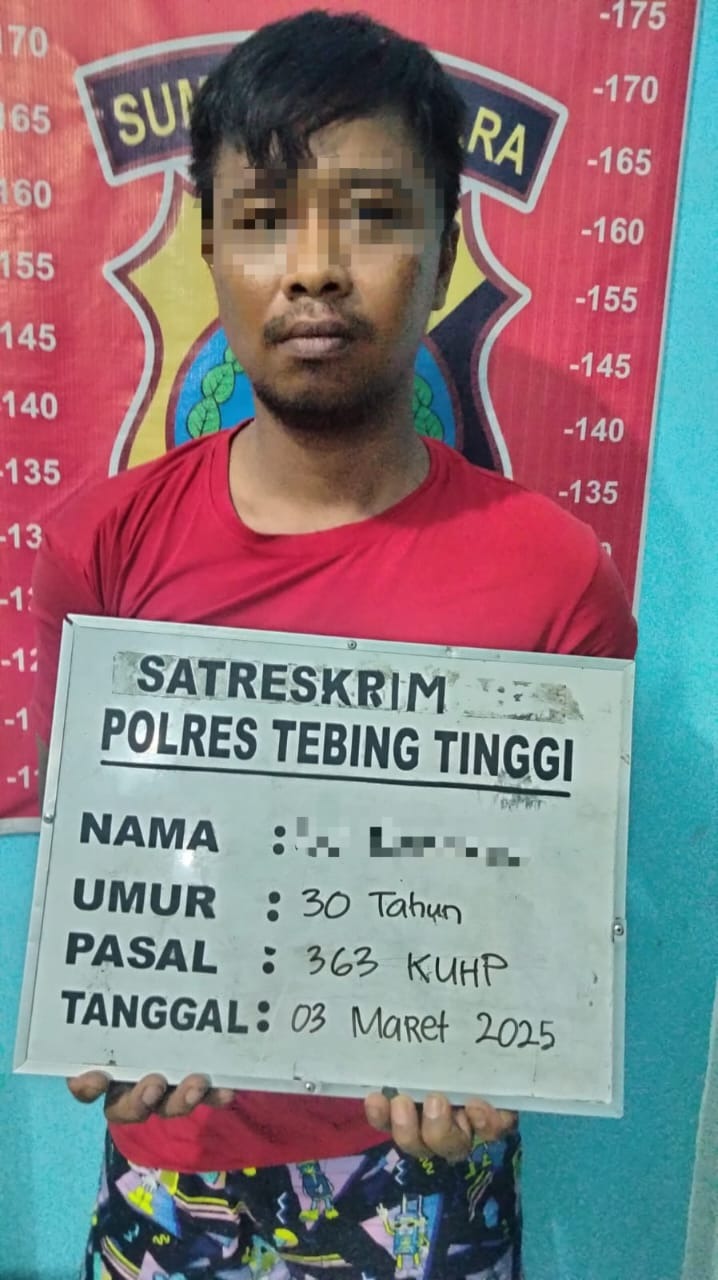 SUM RA
-175
170 -170
165 -165
160 -160
155 -155
145 -145
-140 -140
-135 -135
SATRESKRIM
POLRES TEBING TINGGI
NAMA :
UMUR : 30 Tahun
PASAL : 363 KUHP
TANGGAL : 03 Maret 2025